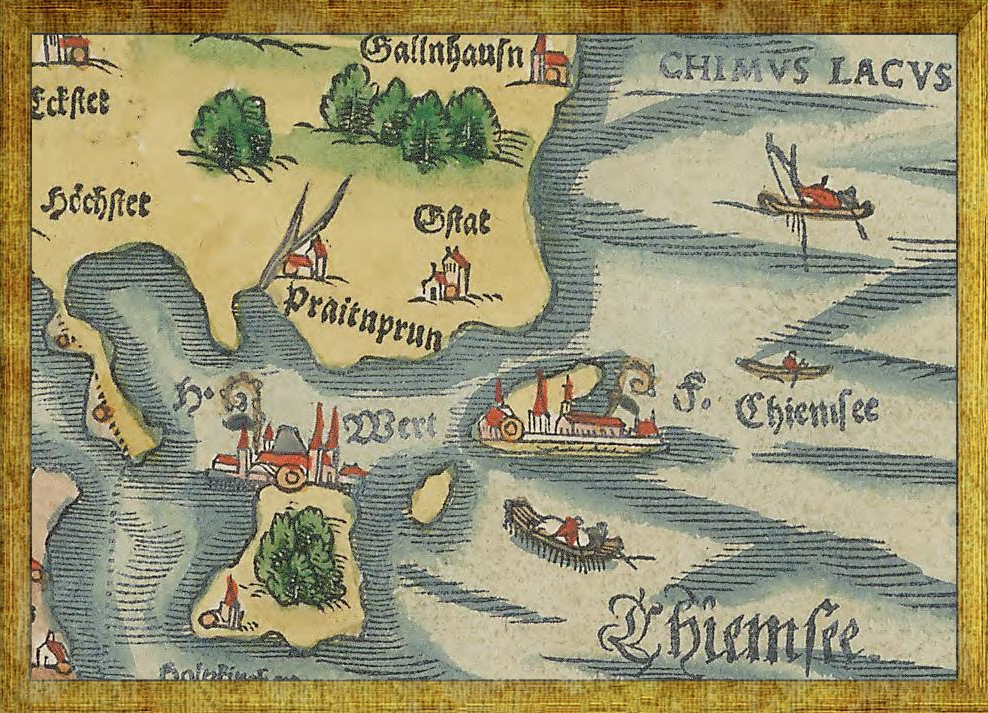 Gallnhausn
CHIMVS LACVS
Eckstet
Höchstet
Gstat
Praitnprun
H. Wert
F. Chiemsee
Chiemsee.